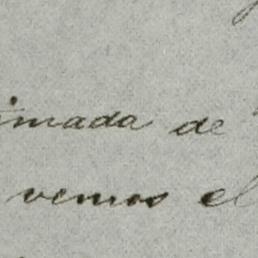 imada de
vemos el